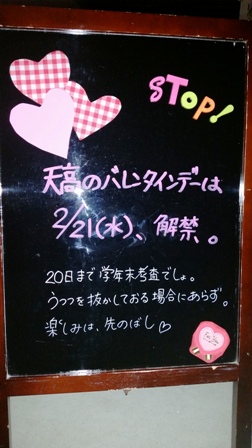 STOP!
天高のバレンタインデーは
2/21(水)、解禁。
20日まで学年末考査でしょ。
うつつを抜かしておる場合にあらず。
楽しみは、先のばし♡